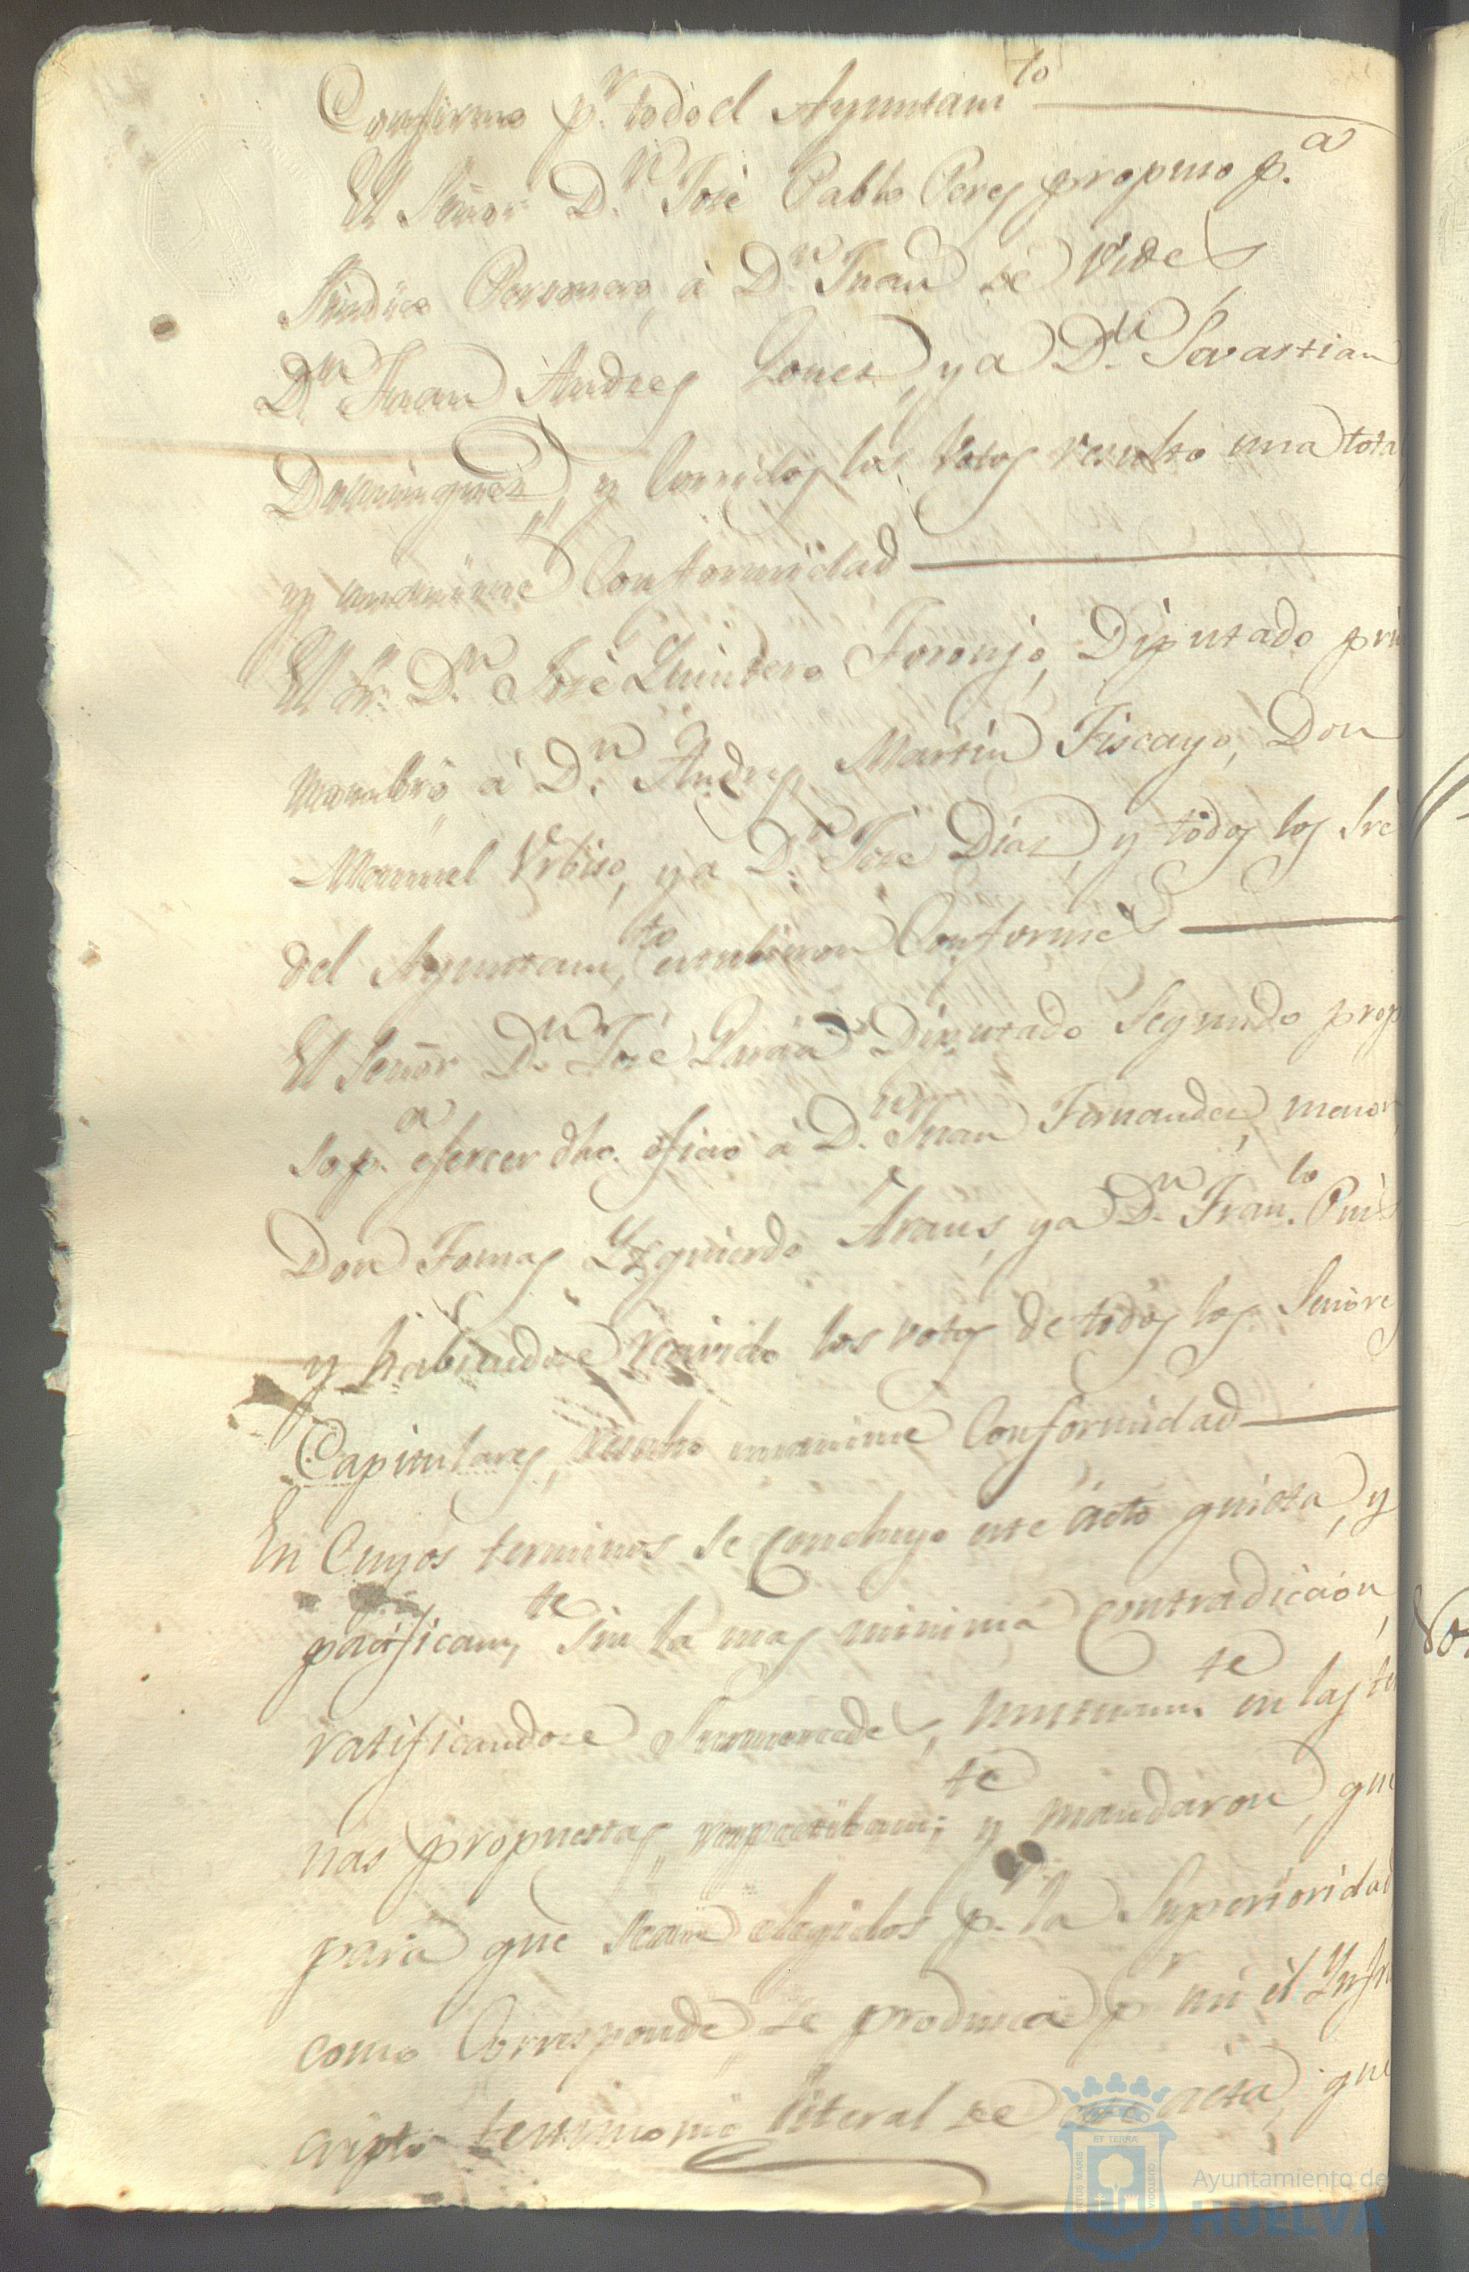 Conforme p.r todo el Ayuntam.to
El Señor D.n José Pablo Perez propuso p.a
Sindico Personero, á D.n Juan de Vides
D.n Juan Andres Gomez, y a D.n Sevastian
Dominguez, y corridos los votos resulto una tota
y unanime Conformidad
El Sr. D.n José Quintero Toronjo, Diputado pri
nombró á D.n Andres Martin Fiscayo, Don
Manuel Urbiso, y a D.n José Dias, y todos los Sre
del Ayuntam.to estubieron Conformes
El Señor D.n José Diputado Segundo prop
so p.a ejercer dho. oficio á D.n Juan Fernandez, menor,
Don Tomas Yzquierdo Araus, y a D.n Fran.co
y habiendose recivido los votos de todos los Señore
Capitulares, resulto unanime Conformidad
En Cuyos terminos se concluyo este acto quieta, y
pacificam.te sin la mas minima contradicion,
ratificandose Sumercedes, mutuam.te en las te
nas propuestas respectibam.te y mandaron, que
para que sean elegidos p.r la Superioridad
como Corresponde, se produsca p.r mi el Ynfra
cripto testimonio literal de este acta, que
Ayuntamiento de
HUELVA